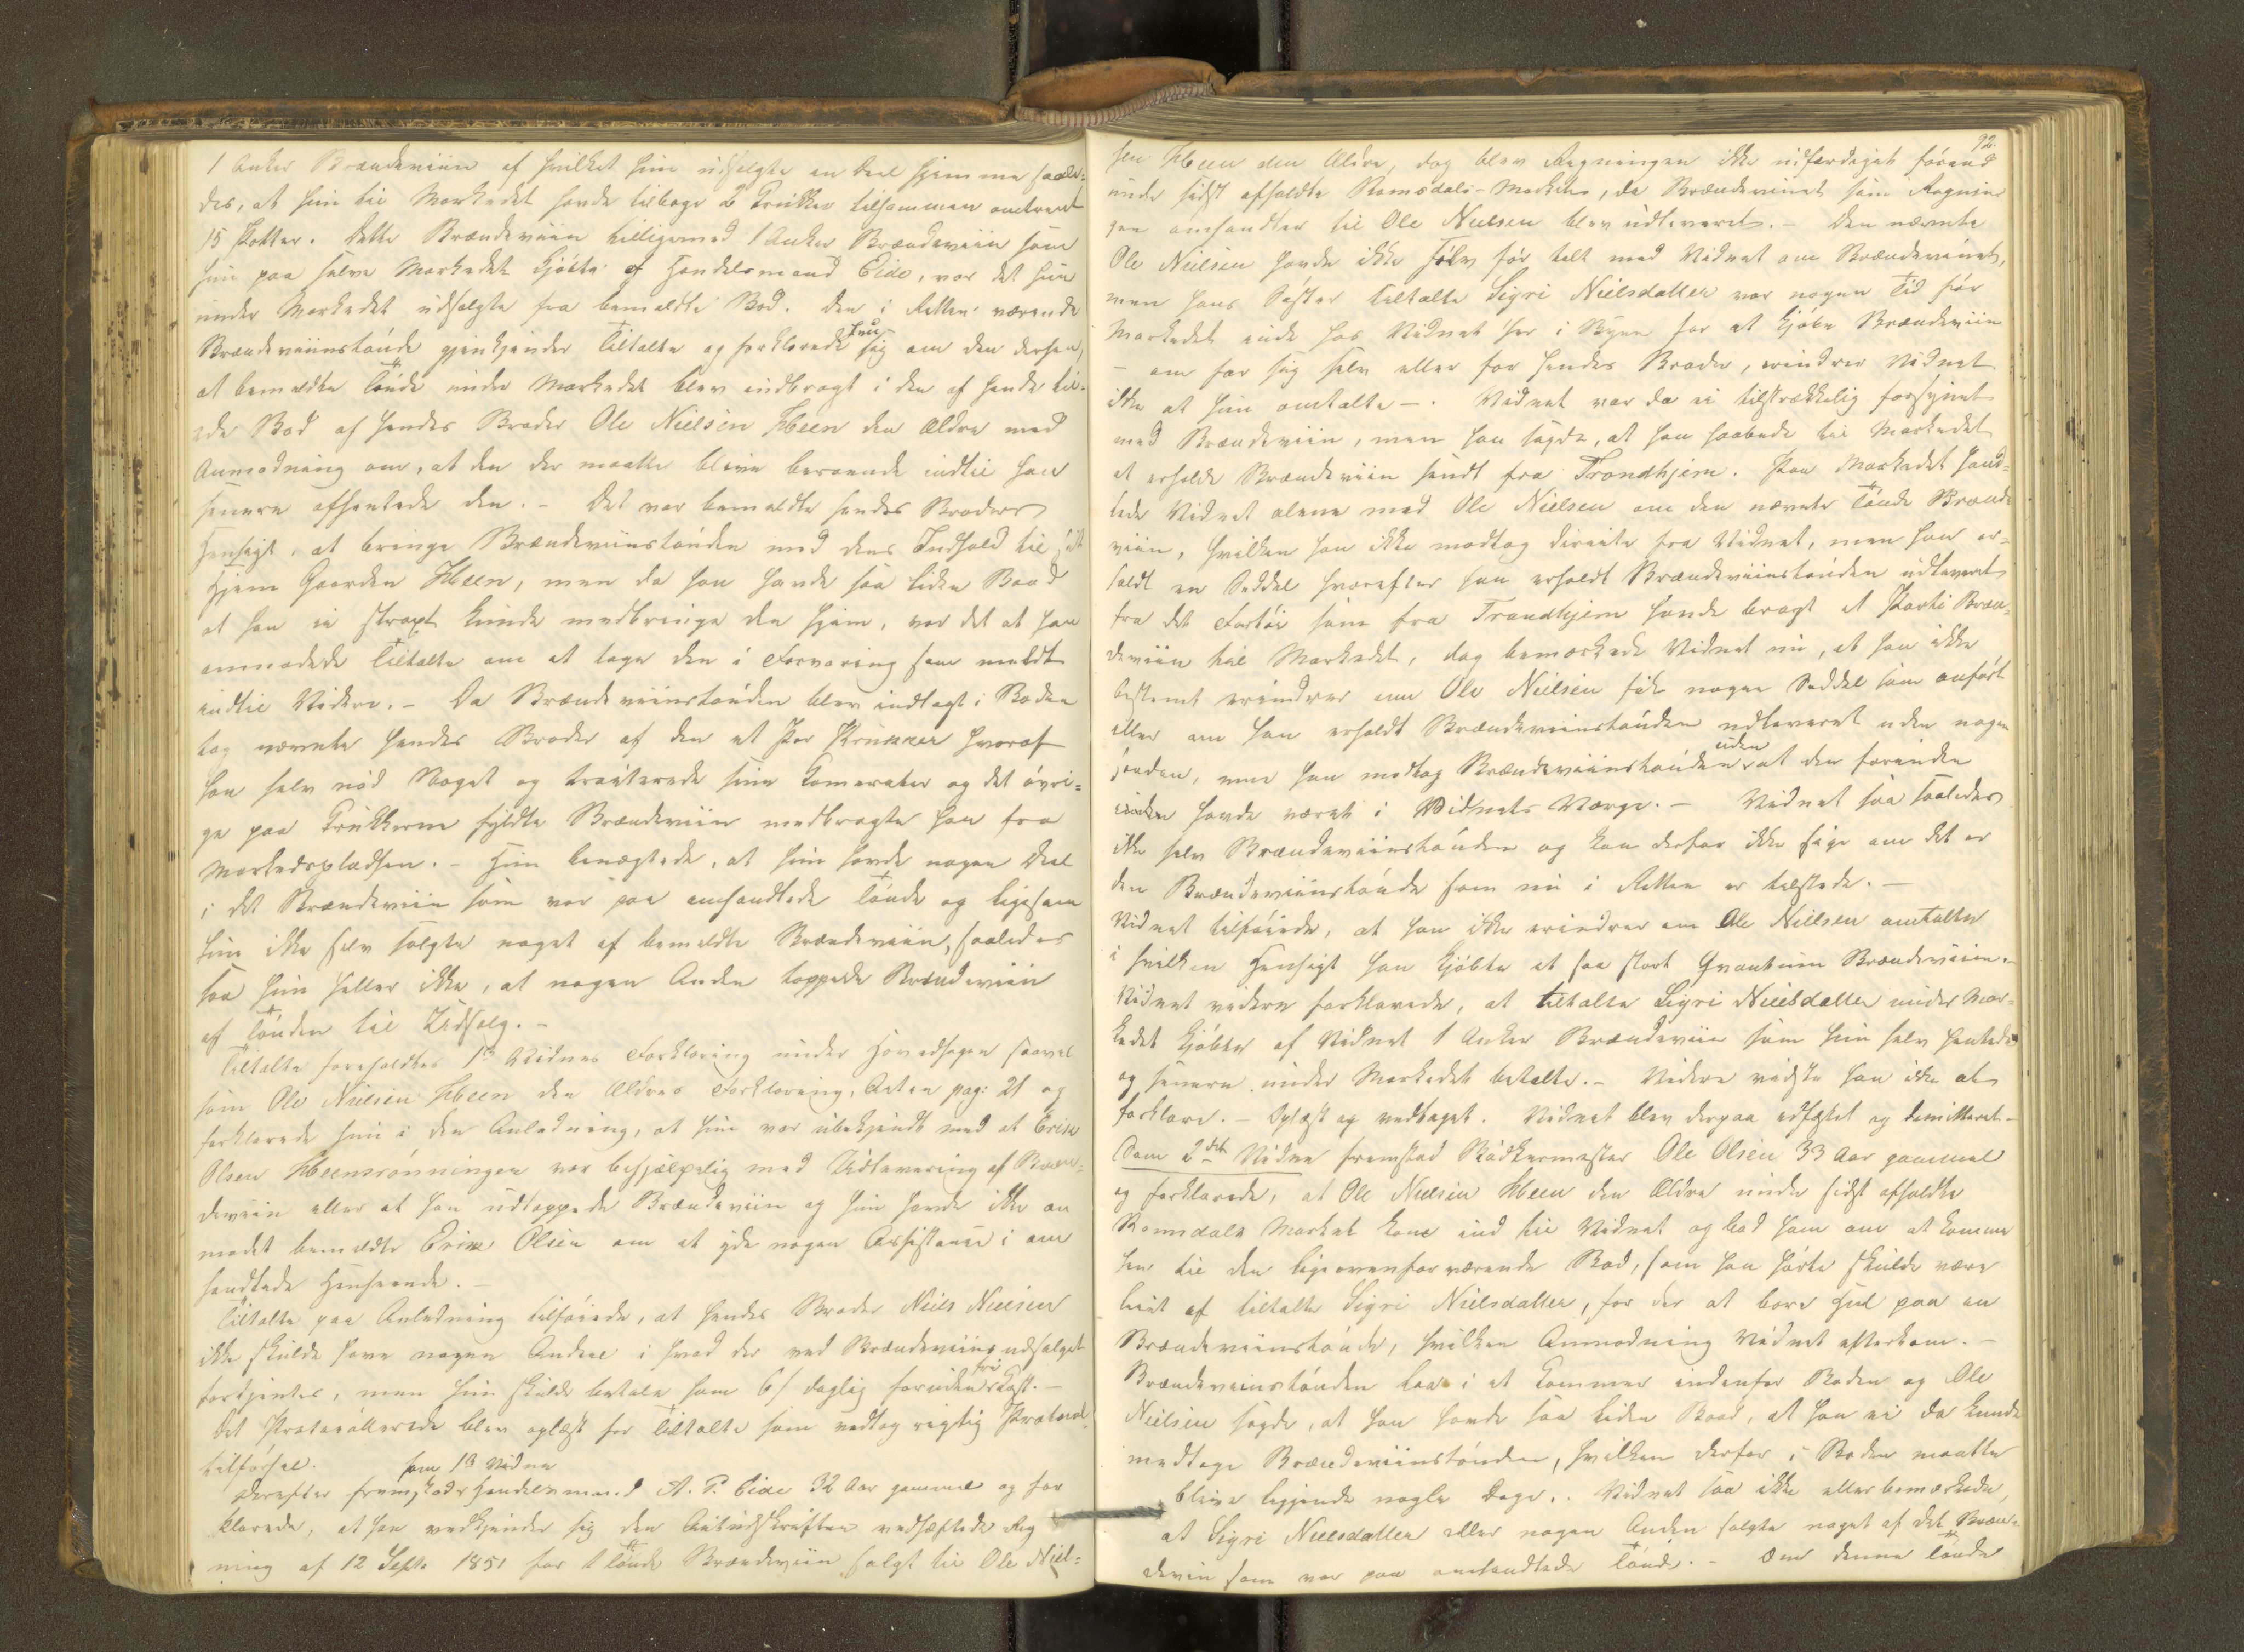 1 Anker Brændeviin af hvilket hun udsolgte en Deel hjemme saale-
des, at hun til Markedet havde tilbage 2 Trukker tilsammen omtrent
15 Potter. Dette Brændeviin tilligemed 1 Anker Brændeviin som
hun paa selve Markedet kjøbte af Handelsmand Eide, var det hun
under Markedet udsolgte fra bemeldte Bod. Den i Retten værende
Brændeviinstønde gjenkjender Tiltalte og forklarede hun sig om den derhen,
at bemeldte Tønde under Markedet blev indbragt i den af hende lei-
ede Bod af hendes Broder Ole Nielsen Heen den Ældre med
Anmodning om, at den der maatte blive beroende indtil han
senere afhentede den. - Det var bemeldte hendes Broders
Hensigt, at bringe Brændeviinstønden med dens Indhold til sit
Hjem Gaarden Heen, men da han havde saa liden Baad
at han ei strax kunde medbringe den hjem, var det at han
anmodede Tiltalte om at tage den i Forvaring som meldt
indtil Videre. - Da Brændeviinstønden blev indlagt i Boden
tog nævnte hendes Broder af den et Par Krukker hvoraf
han selv nød Noget og tracterede sine Kamerater og det øvri-
ge paa Krukkerne fyldte Brændeviin medbragte han fra
Markedspladsen. - Hun benægtede, at hun havde nogen Deel
i det Brændeviin som var paa omhandlede Tønde og ligesom
hun ikke selv solgte noget af bemeldte Brændeviin, saaledes
saa hun heller ikke, at nogen Anden tappede Brændeviin
af Tønden til Udsalg. -
Tiltalte foreholdtes 1ste Vidnes Forklaring under Hovedsagen saavel
som Ole Nielsen Heen den Ældres Forklaring, Acten pag: 21 og
forklarede hun i den Anledning, at hun var ubekjendt med at Erik
Olsen Heensrønningen var behjælpelig med Udlevering af Bræn-
deviin eller at han udtappede Brændeviin og hun havde ikke an
modet bemeldte Erik Olsen om at yde nogen Assistance i om
handlede Henseende. -
Tiltalte paa Anledning tilføiede, at hendes Broder Niels Nielsen
ikke skulde have nogen Andeel i hvad der ved Brændeviins udsalget
fortjentes, men hun skulde betale ham 6 s daglig foruden fri Kost. -
Det Protocollerede blev oplæst for Tiltalte som vedtog rigtig Protocol
tilførsel.
Derefter fremstod som 1ste Vidne Handelsmand A. P. Eide 32 Aar gammel og for
klarede, at han vedkjender sig den Anmeldskriften vedhæftede Reg
ning af 12 Sept. 1851 for 1 Tønde Brændeviin solgt til Ole Niel-
92.
sen Heen den Ældre, dog blev Regningen ikke udfærdiget førend
under sidst afholdte Romsdals-Marked, da Brændevinet som Regnin
gen omhandler til Ole Nielsen blev udleveret. - Den nævnte
Ole Nielsen havde ikke selv før talt med Vidnet om Brændevinet,
men hans Søster Tiltalte Sigri Nielsdatter var nogen Tid før
Markedet inde hos Vidnet her i Byen for at kjøbe Brændeviin
- om for sig selv eller for hendes Broder, erindrer Vidnet
ikke at hun omtalte -. Vidnet var da ei tilstrækkelig forsynet
med Brændeviin, men han sagde, at han haabede til Markedet
at erholde Brændeviin sendt fra Trondhjem. Paa Markedet hand-
lede Vidnet alene med Ole Nielsen om den nævnte Tønde Brænde
viin, hvilken han ikke modtog directe fra Vidnet, men han er-
holdt en Seddel hvorefter han erholdt Brændeviinstønden udleveret
fra det Fartøi som fra Trondhjem havde bragt et Parti Bræn-
deviin til Markedet, dog bemærkede Vidnet nu, at han ikke
bestemt erindrer om Ole Nielsen fik nogen Seddel som anført
eller om han erholdt Brændeviinstønden udleveret uden nogen
saadan, men han modtog Brændeviinstønden uden at den forinden
havde været i Vidnets Værge. - Vidnet saa saaledes
ikke selv Brændeviinstønden og kan derfor ikke sige om det er
den Brændeviinstønde som nu i Retten er tilstede. -
Vidnet tilføiede, at han ikke erindrer om Ole Nielsen omtalte
i hvilken Hensigt han kjøbte et saa stort Qvantum Brændeviin. -
Vidnet videre forklarede, at tiltalte Sigri Nielsdatter under Mar-
kedet kjøbte af Vidnet 1 Anker Brændeviin som hun selv hentede
og senere under Markedet betalte. - Videre vidste han ikke at
forklare. - Oplæst og vedtaget. Vidnet blev derpaa edfæstet og dimitteret. -
Som 2det Vidne fremstod Bødkermester Ole Olsen 33 Aar gammel
og forklarede, at Ole Nielsen Heen den Ældre under sidst afholdte
Romsdals Marked kom ind til Vidnet og bad ham om at komme
hen til den ligeovenfor værende Bod, som han hørte skulde være
leiet af tiltalte Sigri Nielsdatter, for der at bore Hul paa en
Brændeviinstønde, hvilken Anmodning Vidnet efterkom. -
Brændeviinstønden laa i et Kammer indenfor Boden og Ole
Nielsen sagde, at han havde saa liden Baad, at han ei da kunde
medtage Brændeviinstønden, hvilken derfor i Boden maatte
blive liggende nogle Dage. Vidnet saa ikke eller bemærkede,
at Sigri Nielsdatter eller nogen Anden solgte noget af det Bræn-
deviin som var paa omhandlede Tønde. - Om denne Tønde